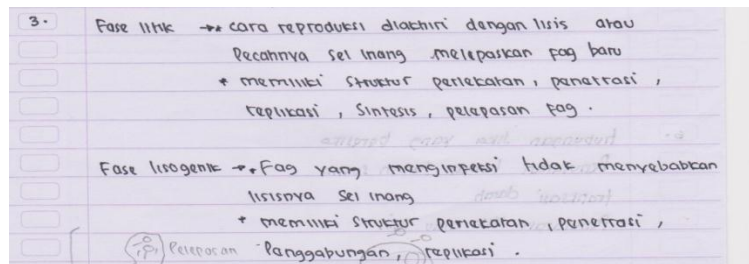 3. Fase litik →• cara reproduksi diakhiri dengan lisis atau
Pecahnya sel inang melepaskan fag baru
• memiliki struktur perlekatan, penetrasi,
replikasi, sintesis, pelepasan fag.
Fase lisogenik →• Fag yang menginfeksi tidak menyebabkan
lisisnya sel inang
• memiliki struktur perlekatan, penetrasi,
Pelepasan Panggabungan, replikasi.